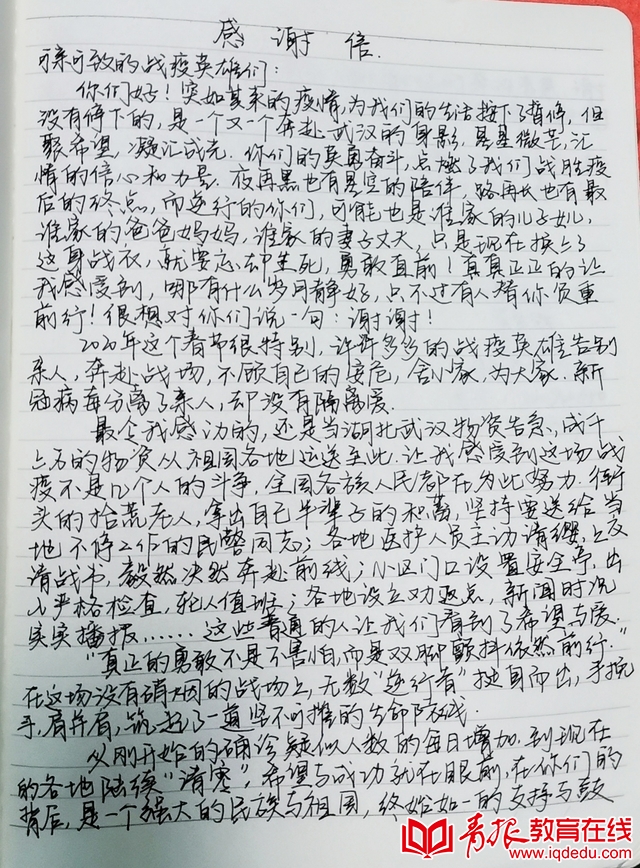 感谢信
可亲可敬的战疫英雄们：
你们好！突如其来的疫情，为我们的生活按下了暂停，但
没有停下的，是一个又一个奔赴武汉的身影，星星微芒，汇
聚希望，凝汇成光．你们的英勇奋斗，点燃了我们战胜疫
情的信心和力量．夜再黑也有星空的陪伴，路再长也有最
后的终点，而逆行的你们，可能也是谁家的儿子女儿，
谁家的爸爸妈妈，谁家的妻子丈夫，只是现在换上了
这身战衣，就要忘却生死，勇敢直前！真真正正的让
我感受到，哪有什么岁月静好，只不过有人替你负重
前行！很想对你们说一句：谢谢！
2020年这个春节很特别，许许多多的战疫英雄告别
亲人，奔赴战场，不顾自己的安危，舍小家，为大家．新
冠病毒分离了亲人，却没有隔离爱．
最令我感动的，还是当湖北武汉物资告急，成千
上万的物资从祖国各地运送至此．让我感受到这场战
疫不是几个人的斗争，全国各族人民都在为此努力．街
头的拾荒老人，拿出自己半辈子的积蓄，坚持要送给当
地不停工作的民警同志；各地医护人员主动请缨，上交
请战书，毅然决然奔赴前线；小区门口设置安全亭，出
入严格检查，轮人值班；各地设立劝返点，新闻时况
实实播报……这些普通的人让我们看到了希望与爱．
“真正的勇敢不是不害怕，而是双脚颤抖依然前行．”
在这场没有硝烟的战场上，无数“逆行者”挺身而出，手挽
手，肩并肩，筑起了一道坚不可摧的生命防线．
从刚开始的确诊疑似人数的每日增加，到现在
的各地陆续“清零”，希望与成功就在眼前，在你们的
背后，是一个强大的民族与祖国，终始如一的支持与鼓
青报教育在线
www.iqdedu.com